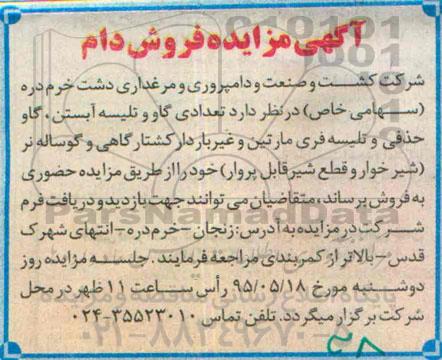 آگهی مزایده فروش دام
شرکت کشت و صنعت و دامپروری و مرغداری دشت خرم دره
(سهامی خاص) در نظر دارد تعدادی گاو و تلیسه آبستن، گاو
حذفی و تلیسه فری مارتین و غیر باردار کشتارگاهی و گوساله نر
(شیر خوار و قطع شیر قابل پروار) خود را از طریق مزایده حضوری
به فروش برساند، متقاضیان می توانند جهت بازدید و دریافت فرم
شرکت در مزایده به آدرس: زنجان - خرم دره - انتهای شهرک
قدس - بالاتر از کمربندی مراجعه فرمایند. جلسه مزایده روز
دوشنبه مورخ ۹۵/۰۵/۱۸ رأس ساعت ۱۱ ظهر در محل
شرکت برگزار میگردد. تلفن تماس ۳۵۵۲۳۰۱۰-۰۲۴
ParsNamadData
۰۲۱-۸۸۳۴۹۶۷۰